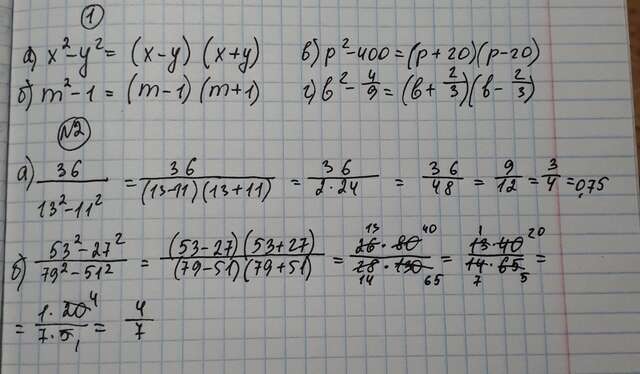 1
а) x² - y² = (x-y) (x+y) в) p² - 400 = (p+20)(p-20)
б) m² - 1 = (m-1) (m+1) г) b² - 4/9 = (b + 2/3)(b - 2/3)
№2
а) 36/(13² - 11²) = 36/((13-11)(13+11)) = 36/(2·24) = 36/48 = 9/12 = 3/4 = 0,75
б) (53² - 27²)/(79² - 51²) = ((53-27)(53+27))/((79-51)(79+51)) = (26 13 · 80 40)/(28 14 · 130 65) = (13 1 · 40 20)/(14 7 · 65 5) =
= (1 · 20 4)/(7 · 5 1) = 4/7